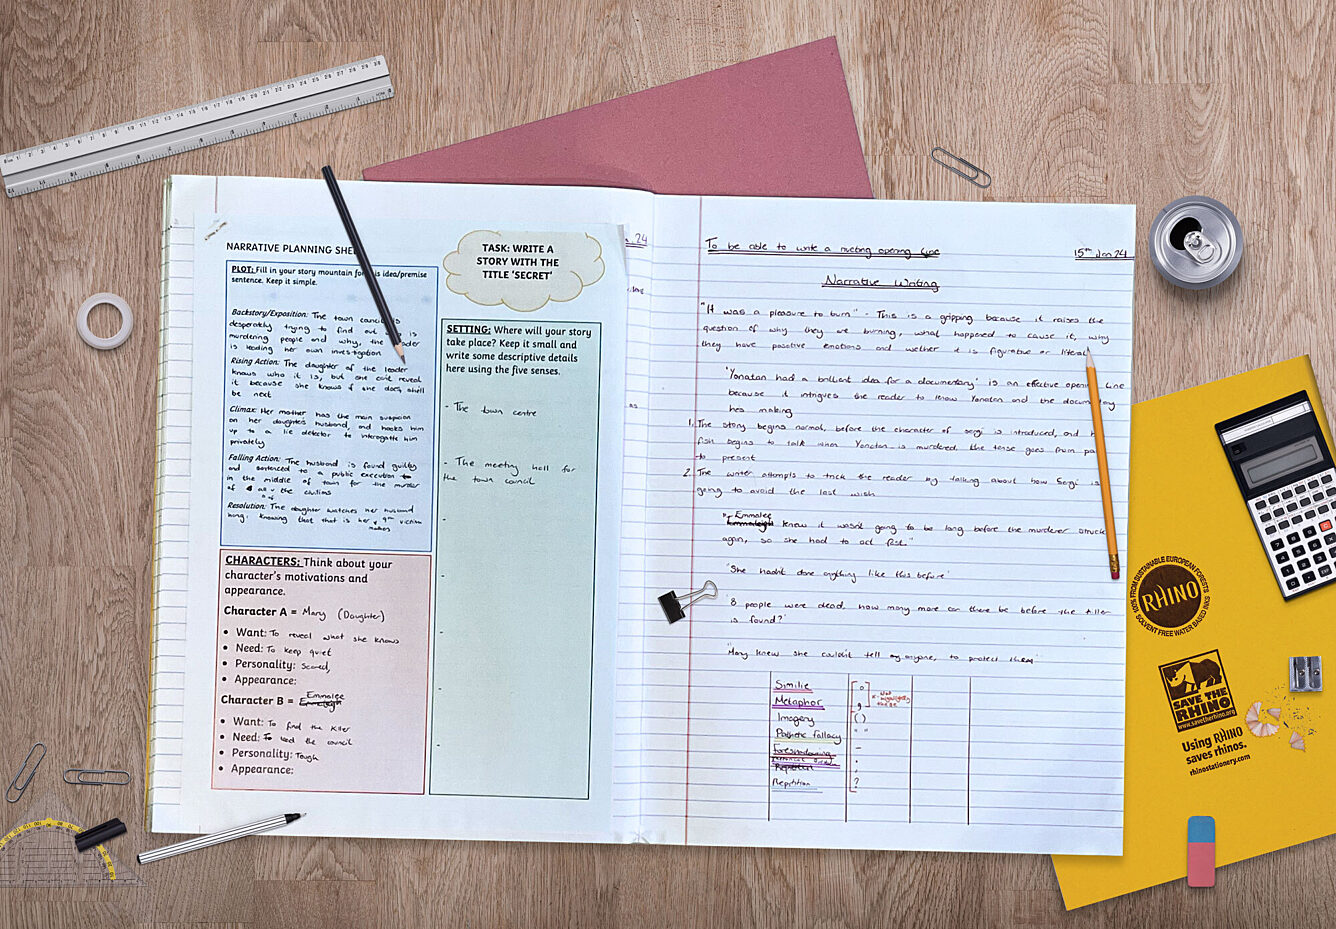 NARRATIVE PLANNING SHE
TASK: WRITE A
STORY WITH THE
TITLE 'SECRET'
PLOT: Fill in your story mountain for is idea/premise
sentence. Keep it simple.
Backstory/Exposition: The town council is
desperately trying to find out is
murdering people and why, the leader
is leading her own investigation
Rising Action: The daughter of the leader
knows who it is, but she can't reveal
it because she knows if she does, she'll
be next
Climax: Her mother has the main suspicion
on her daughters husband, and hooks him
up to a lie detector to interrogate him
privately
Falling Action: The husband is found guilty
and sentenced to a public execution
in the middle of town for the murder
of all the civilians
Resolution: The daughter watches her husband
hang, knowing that that is her 9th victim
SETTING: Where will your story
take place? Keep it small and
write some descriptive details
here using the five senses.
- The town centre
- The meeting hall for
the town council
CHARACTERS: Think about your
character's motivations and
appearance.
Character A = Mary (Daughter)
• Want: To reveal what she knows
• Need: To keep quiet
• Personality: Scared,
• Appearance:
Emmalee
Character B =
• Want: To find the killer
• Need: To lead the council
• Personality: Tough
• Appearance:
. 24
To be able to write a riveting opening line
15th Jan 24
Narrative Writing
"It was a pleasure to burn" - This is a gripping because it raises the
question of why they are burning, what happened to cause it, why
they have positive emotions and wether it is figurative or literal
'Yonatan had a brilliant idea for a documentary' is an effective opening line
because it intrigues the reader to know Yonatan and the documentary
hes making
1. The story begins normal, before the character of sergi is introduced, and h
fish begins to talk when Yonatan is murdered, the tense goes from pa
to present
2. The writer attempts to trick the reader by talking about how Sergi is
going to avoid the last wish
Emmalee
" knew it wasn't going to be long before the murderer struck
again, so she had to act fast."
'She hadn't done anything like this before'
'8 people were dead, how many more can there be before the killer
is found?'
'Mary knew she couldn't tell anyone, to protect them'
Similie
Metaphor
Imagery
Pathetic fallacy
Foreshadowing
Repetition
( )
" "
?
100% FROM SUSTAINABLE EUROPEAN FORESTS
RHINO
SOLVENT FREE WATER BASED INKS
SAVE THE
RHINO
www.savetherhino.org
Using RHINO
saves rhinos.
rhinostationery.com